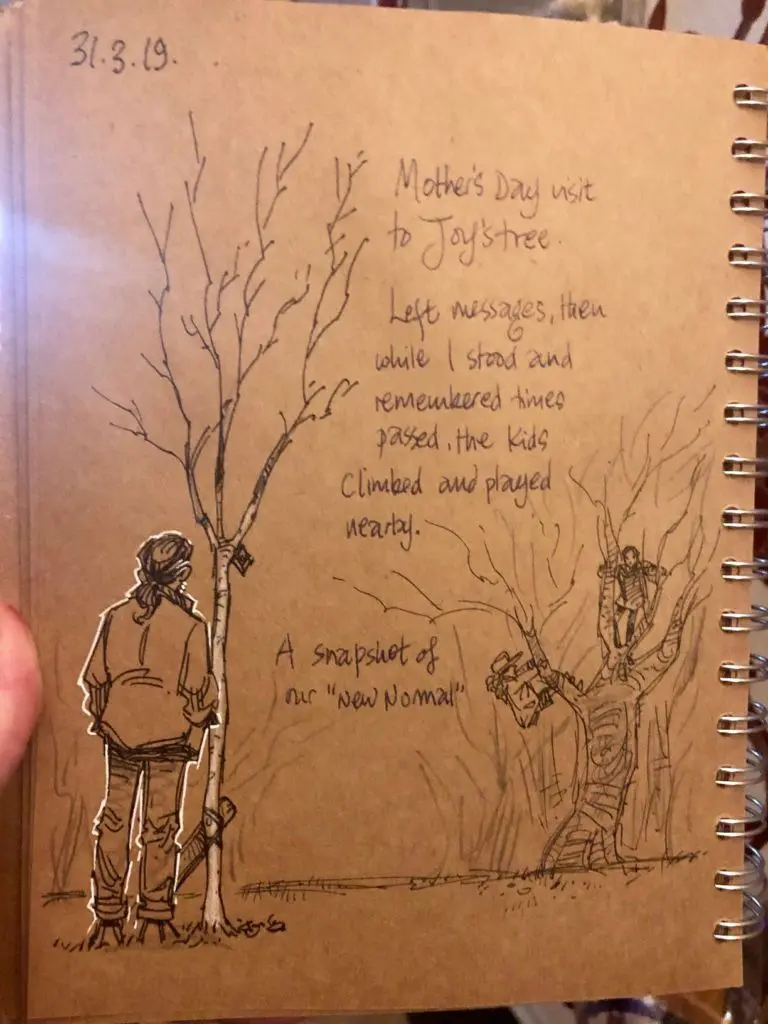 31.3.19.
Mother's Day visit
to Joy's tree.
Left messages, then
while I stood and
remembered times
passed, the kids
climbed and played
nearby.
A snapshot of
our "New Normal"